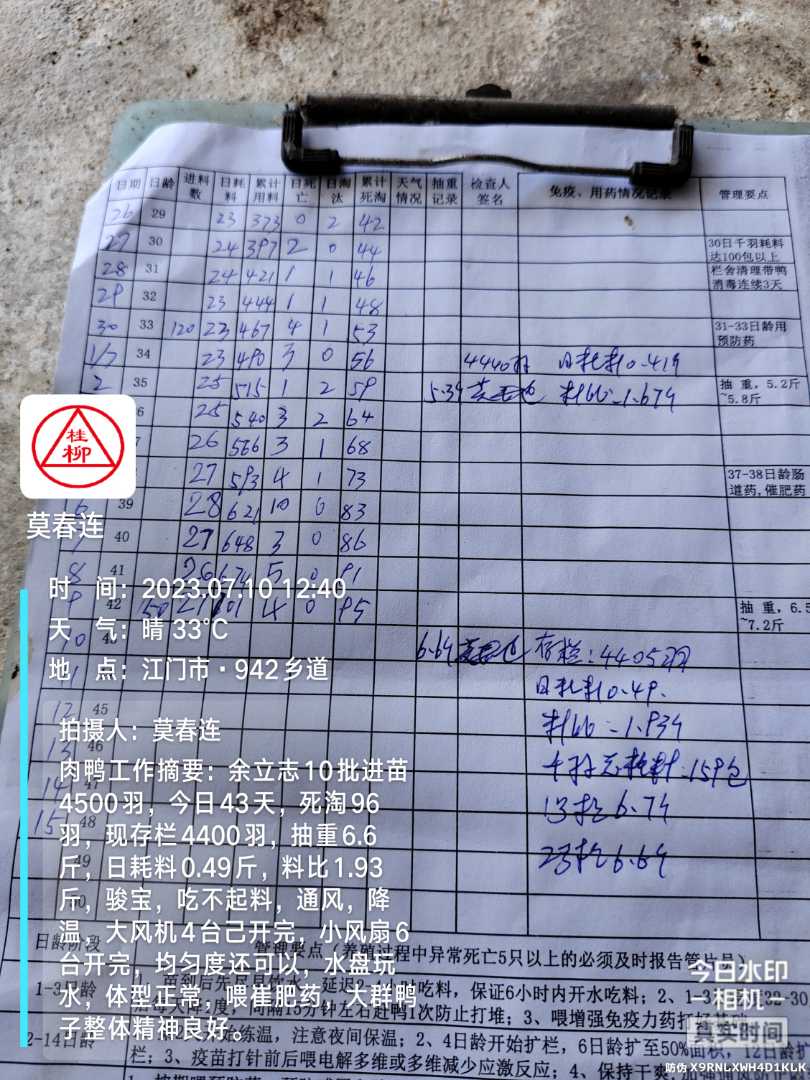 日期 日龄 进料数 日耗料 累计用料 日死亡 日淘汰 累计死淘 天气情况 抽重记录 检查人签名 免疫、用药情况记录 管理要点
26 29 23 373 0 2 42
27 30 24 397 2 0 44 30日千羽耗料达100包以上
28 31 24 421 1 1 46 栏舍清理带鸭消毒连续3天
29 32 23 444 1 1 48
30 33 120 23 467 4 1 53 31-33日龄用预防药
1/7 34 23 490 3 0 56 4440羽 日耗料0.41斤
2 35 25 515 1 2 59 5.3斤 料比:1.67斤 抽重，5.2斤~5.8斤
25 540 3 2 64
26 566 3 1 68
27 593 4 1 73 37-38日龄肠道药,催肥药
39 28 621 10 0 83
40 27 648 3 0 86
8 41 26 674 5 0 91
9 42 150 27 701 4 0 95 抽重，6.5
~7.2斤
10 6.6斤 存栏:4405羽
日耗料0.49.
12 45 料比:1.93斤
13 46 千羽总耗料:159包
14 1号栏6.7斤
15 48 2号栏6.6斤
49
桂柳
莫春连
时 间：2023.07.10 12:40
天 气：晴 33℃
地 点：江门市·942乡道
拍摄人：莫春连
肉鸭工作摘要：余立志10批进苗
4500羽，今日43天，死淘96
羽，现存栏4400羽，抽重6.6
斤，日耗料0.49斤，料比1.93
斤，骏宝，吃不起料，通风，降
温，大风机4台己开完，小风扇6
台开完，均匀度还可以，水盘玩
水，体型正常，喂崔肥药，大群鸭
子整体精神良好。
日龄阶段 管理要点（养殖过程中异常死亡5只以上的必须及时报告管片员）
1-3日龄 吃料，保证6小时内开水吃料；2、1-3
间隔15分钟左右赶鸭1次防止打堆；3、喂增强免疫力药
2-14日龄 温，注意夜间保温；2、4日龄开始扩栏，6日龄扩至50%面积，12日龄
栏；3、疫苗打针前后喂电解多维或多维减少应激反应；4、保持干爽
今日水印
相机
真实时间
防伪 X9RNLXWH4D1KLK